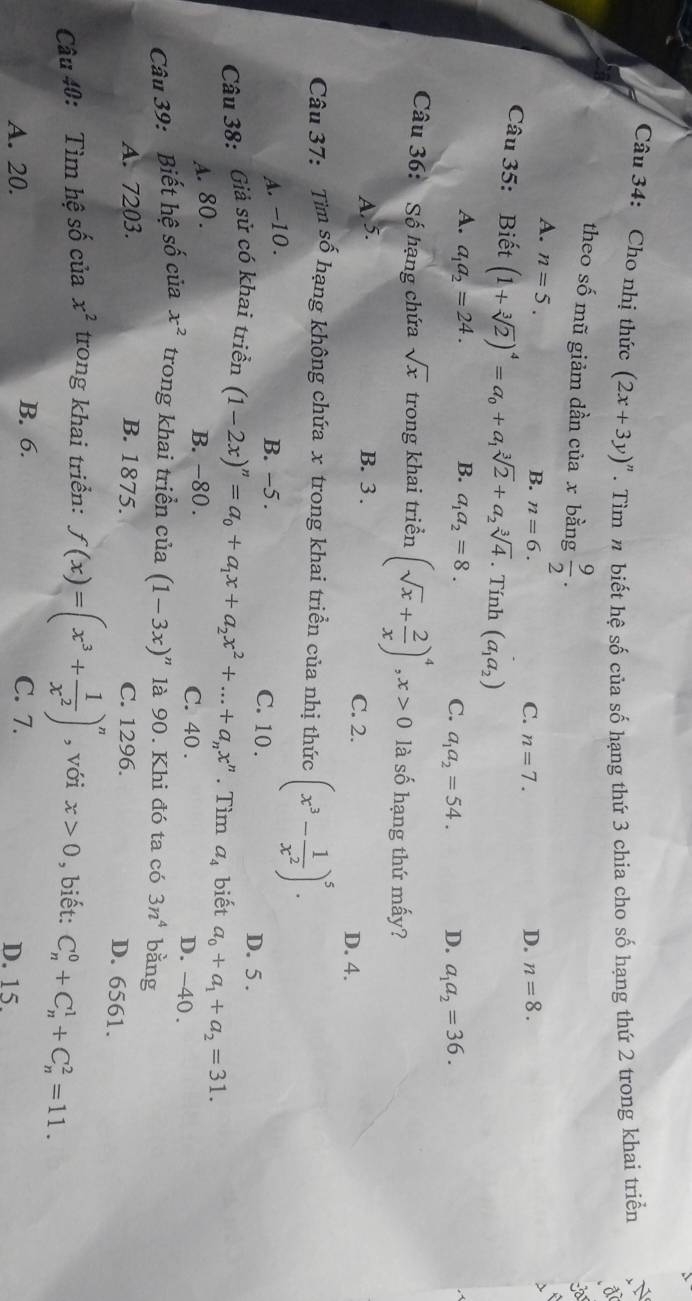 Câu 34: Cho nhị thức (2x+3y)ⁿ. Tìm n biết hệ số của số hạng thứ 3 chia cho số hạng thứ 2 trong khai triển
theo số mũ giảm dần của x bằng 9/2.
A. n=5. B. n=6. C. n=7. D. n=8.
Câu 35: Biết (1+∛2)⁴ = a₀ + a₁∛2 + a₂∛4. Tính (a₁a₂)
A. a₁a₂ = 24. B. a₁a₂ = 8. C. a₁a₂ = 54. D. a₁a₂ = 36.
Câu 36: Số hạng chứa √x trong khai triển (√x + 2/x)⁴, x > 0 là số hạng thứ mấy?
A. 5. B. 3. C. 2. D. 4.
Câu 37: Tìm số hạng không chứa x trong khai triển của nhị thức (x³ − 1/x²)⁵.
A. −10. B. −5. C. 10. D. 5.
Câu 38: Giả sử có khai triển (1−2x)ⁿ = a₀ + a₁x + a₂x² + ... + aₙxⁿ. Tìm a₄ biết a₀ + a₁ + a₂ = 31.
A. 80. B. −80. C. 40. D. −40.
Câu 39: Biết hệ số của x² trong khai triển của (1−3x)ⁿ là 90. Khi đó ta có 3n⁴ bằng
A. 7203. B. 1875. C. 1296. D. 6561.
Câu 40: Tìm hệ số của x² trong khai triển: f(x) = (x³ + 1/x²)ⁿ, với x > 0, biết: Cₙ⁰ + Cₙ¹ + Cₙ² = 11.
A. 20. B. 6. C. 7. D. 15.